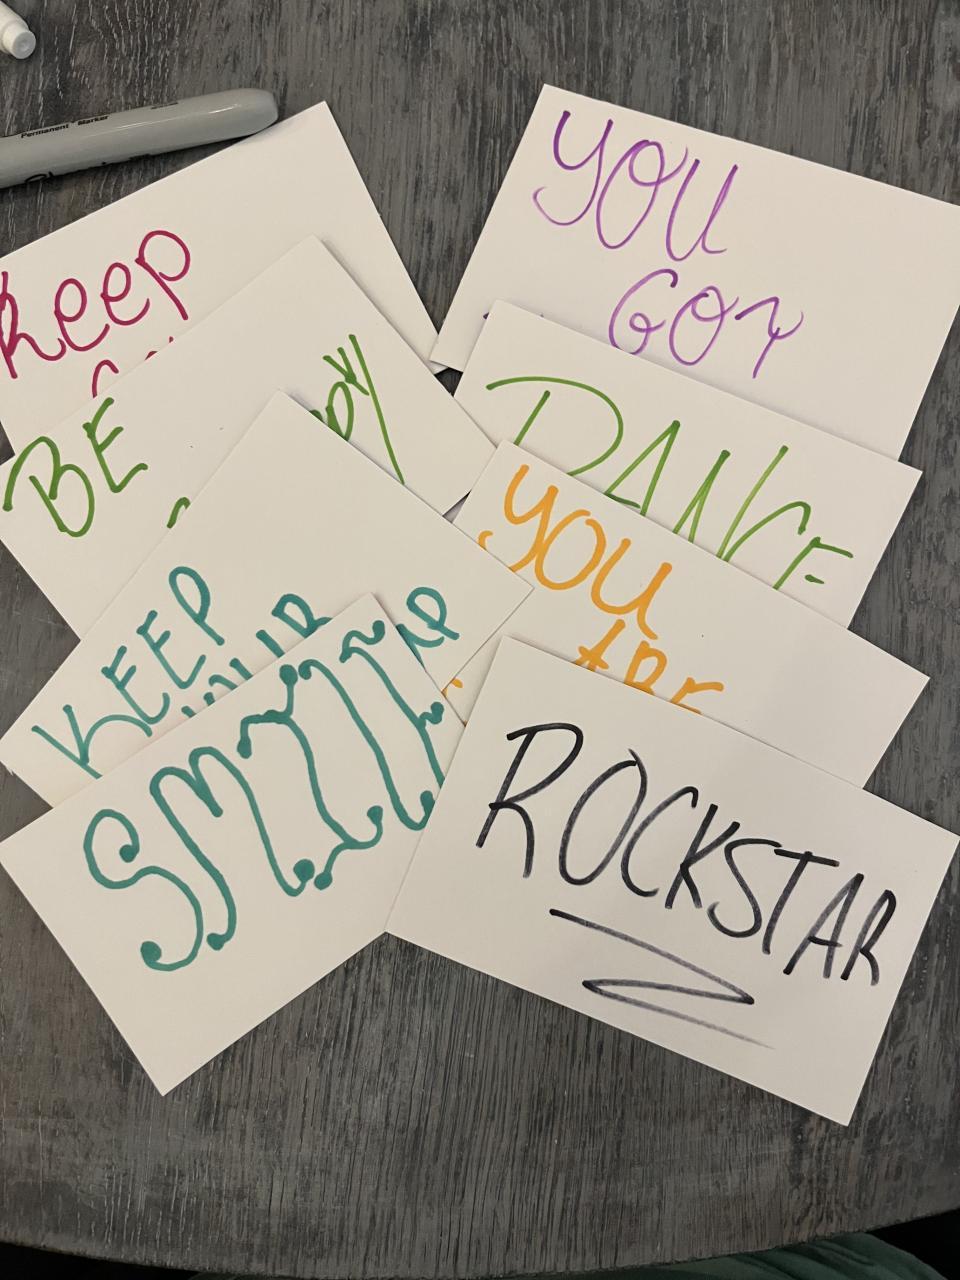 Permanent Marker
Keep
BE
KEEP
SMILE
YOU
GOT
DANCE
YOU
ARE
ROCKSTAR